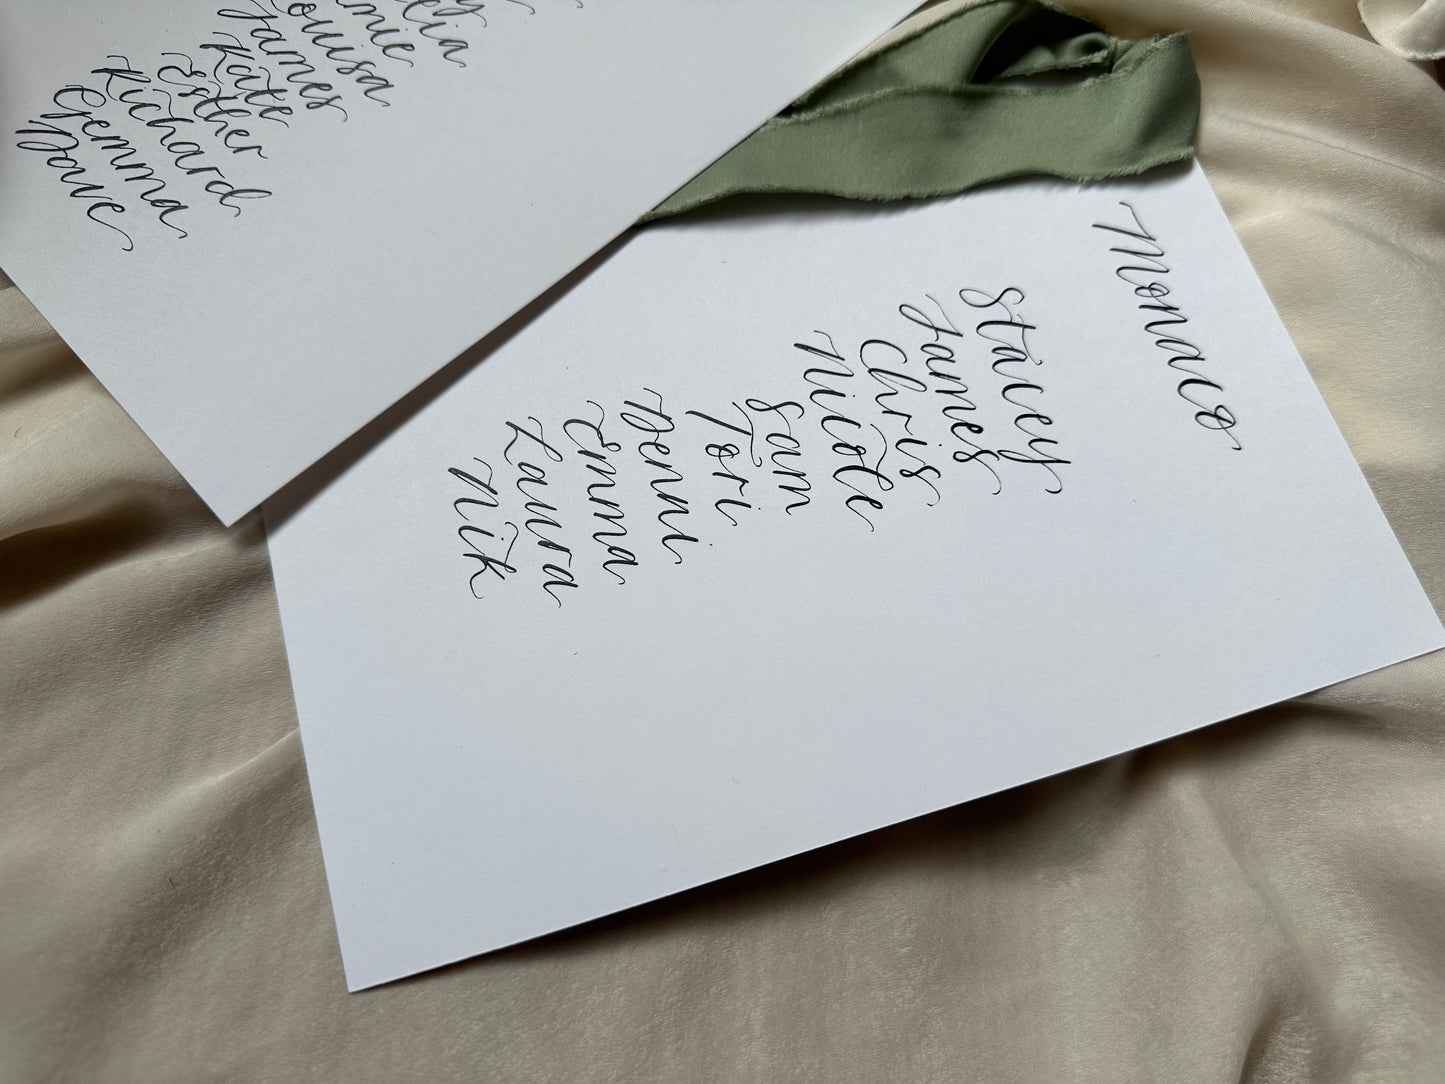 Louisa
James
Kate
Esther
Richard
Gemma
Dave
Monaco
Stacey
James
Chris
Nicole
Sam
Tori
Denni
Emma
Laura
Nik